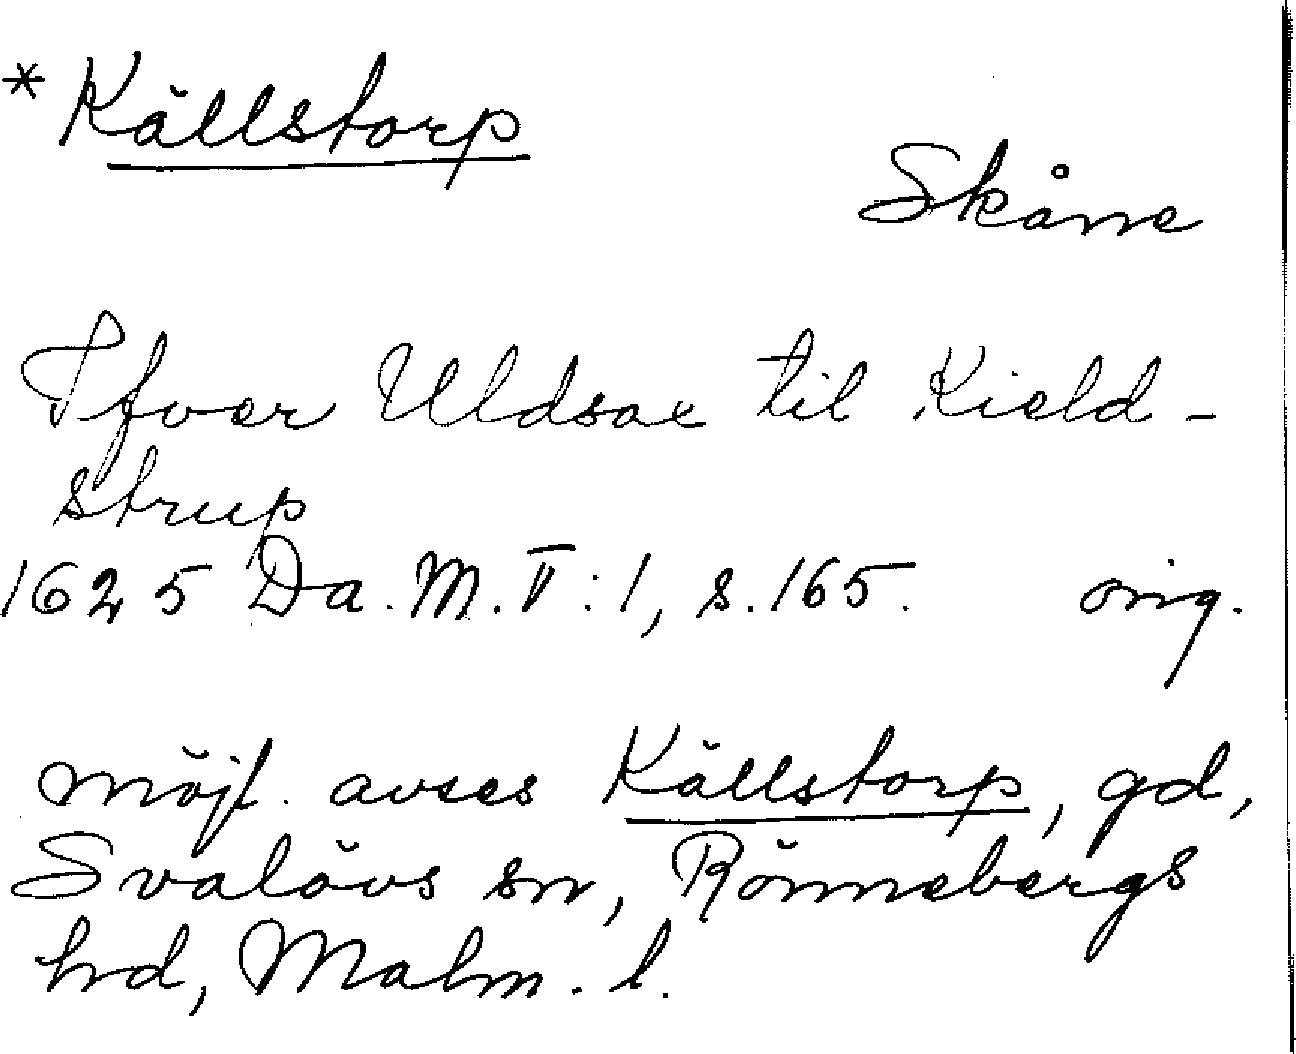 * Källstorp
Skåne
Ifver Uldsax til Kield-
strup
1625 Da. M. V:1, s. 165. orig.
möjl. avses Källstorp, gd,
Svalövs sn, Rönnebergs
hd, Malm. l.